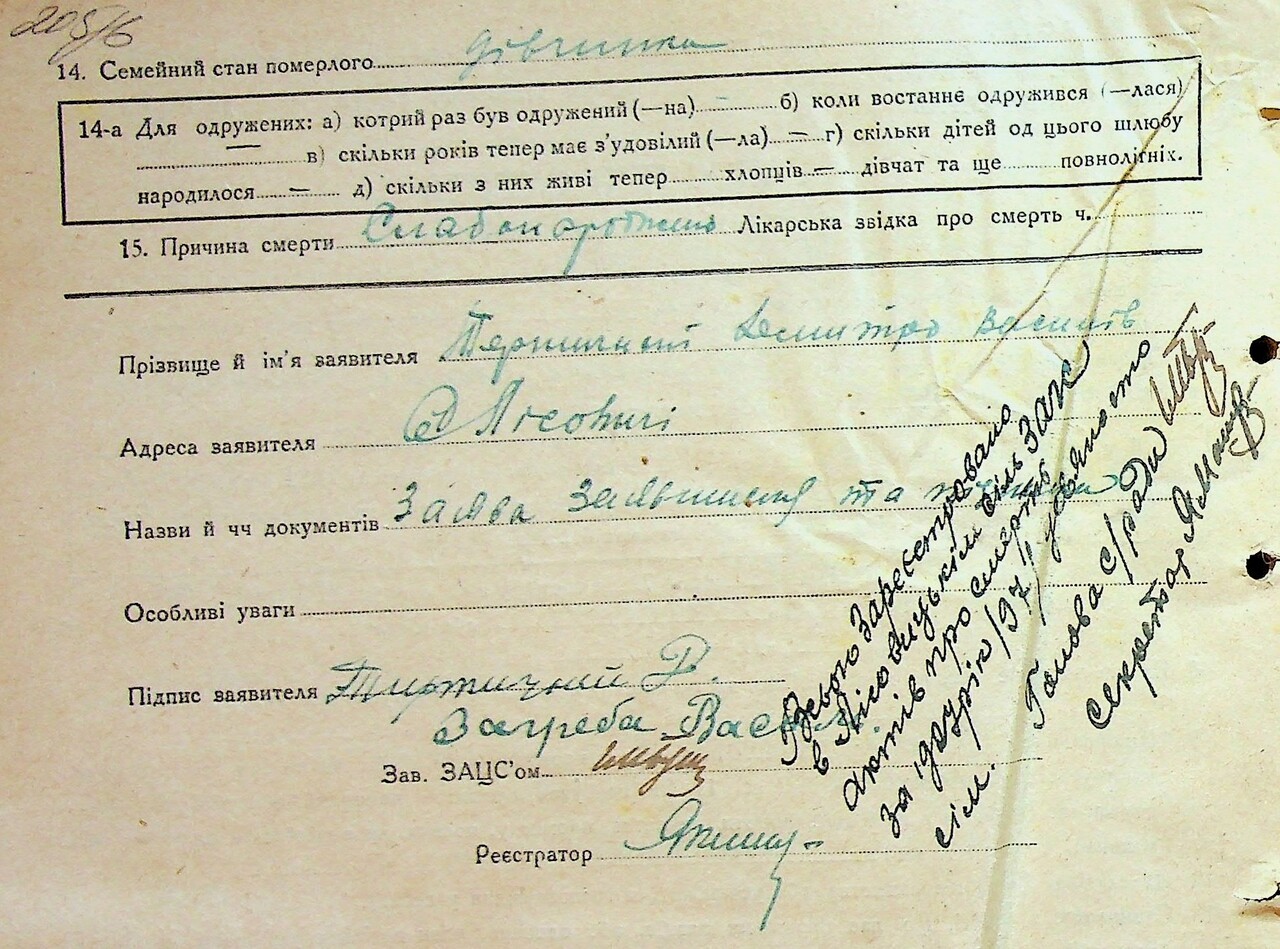 205/6
14. Семейний стан померлого дівчинка
14-а Для одружених: а) котрий раз був одружений (—на) — б) коли востаннє одружився (—лася)
— в) скільки років тепер має з’удовілий (—ла) — г) скільки дітей од цього шлюбу
народилося — д) скільки з них живі тепер хлопців — дівчат та ще повнолітніх.
15. Причина смерти Слабонароджена Лікарська звідка про смерть ч.
Прізвище й ім’я заявителя Дмитро Василів
Адреса заявителя с Лісовичі
Назви й чч документів Заява та
Особливі уваги
Підпис заявителя
Загреба Васил.
Зав. ЗАЦС’ом
Реєстратор
Всього Зареєстровано
в Лісовицькім сіль Заг
актів про смертів
за рік /97/ девяносто
сім. Голова с/ради
секретар